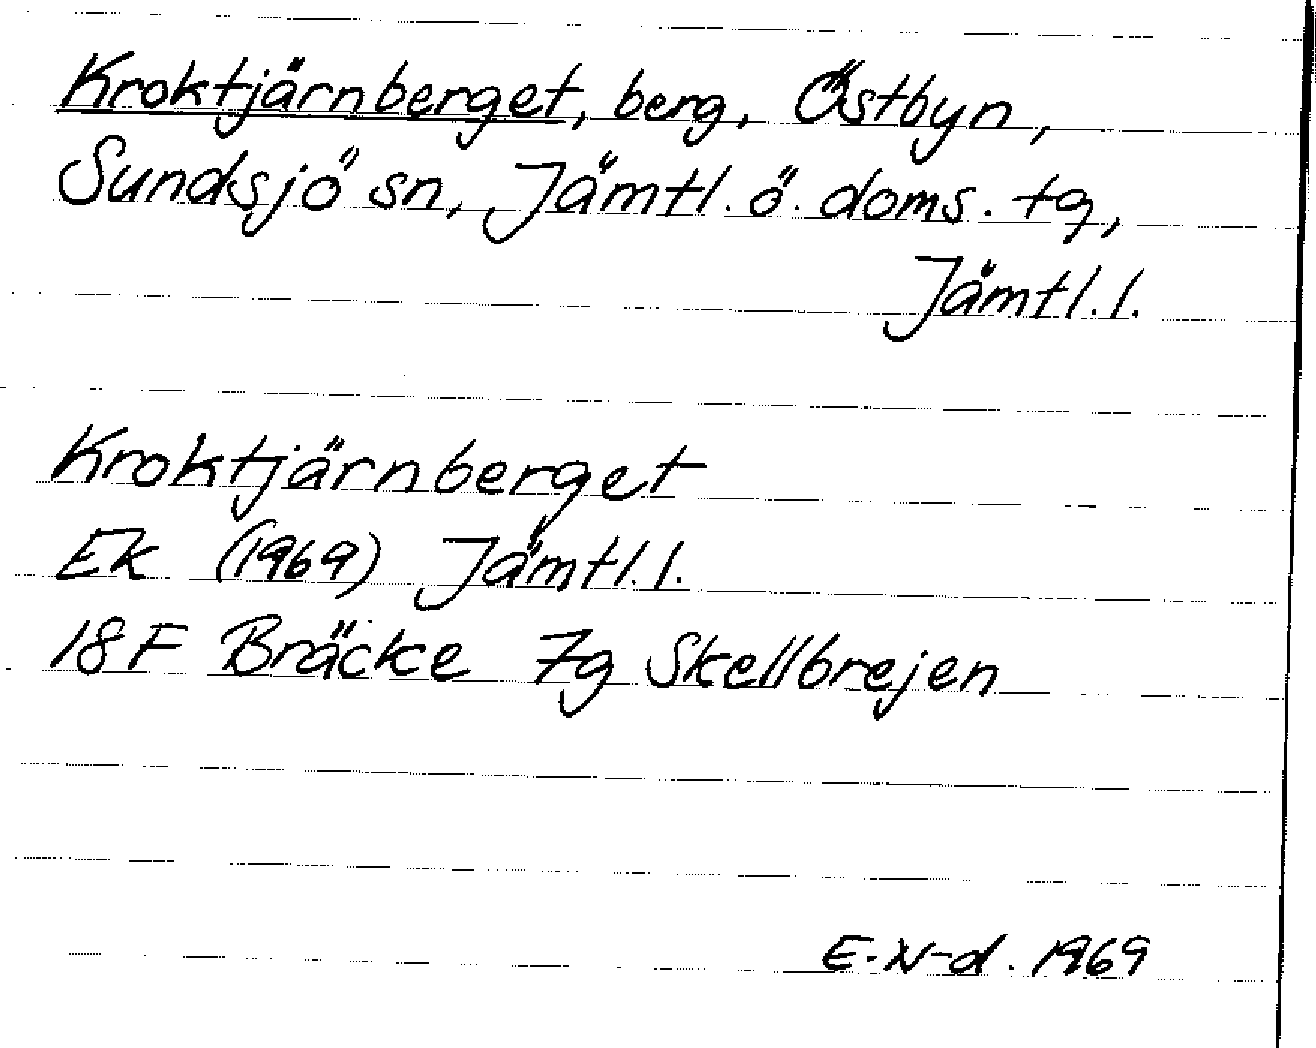 Kroktjärnberget, berg, Östbyn,
Sundsjö sn, Jämtl. ö. doms. tg,
Jämtl. l.
Kroktjärnberget
Ek (1969) Jämtl. l.
18 F Bräcke 7g Skellbrejen
E. N-d. 1969